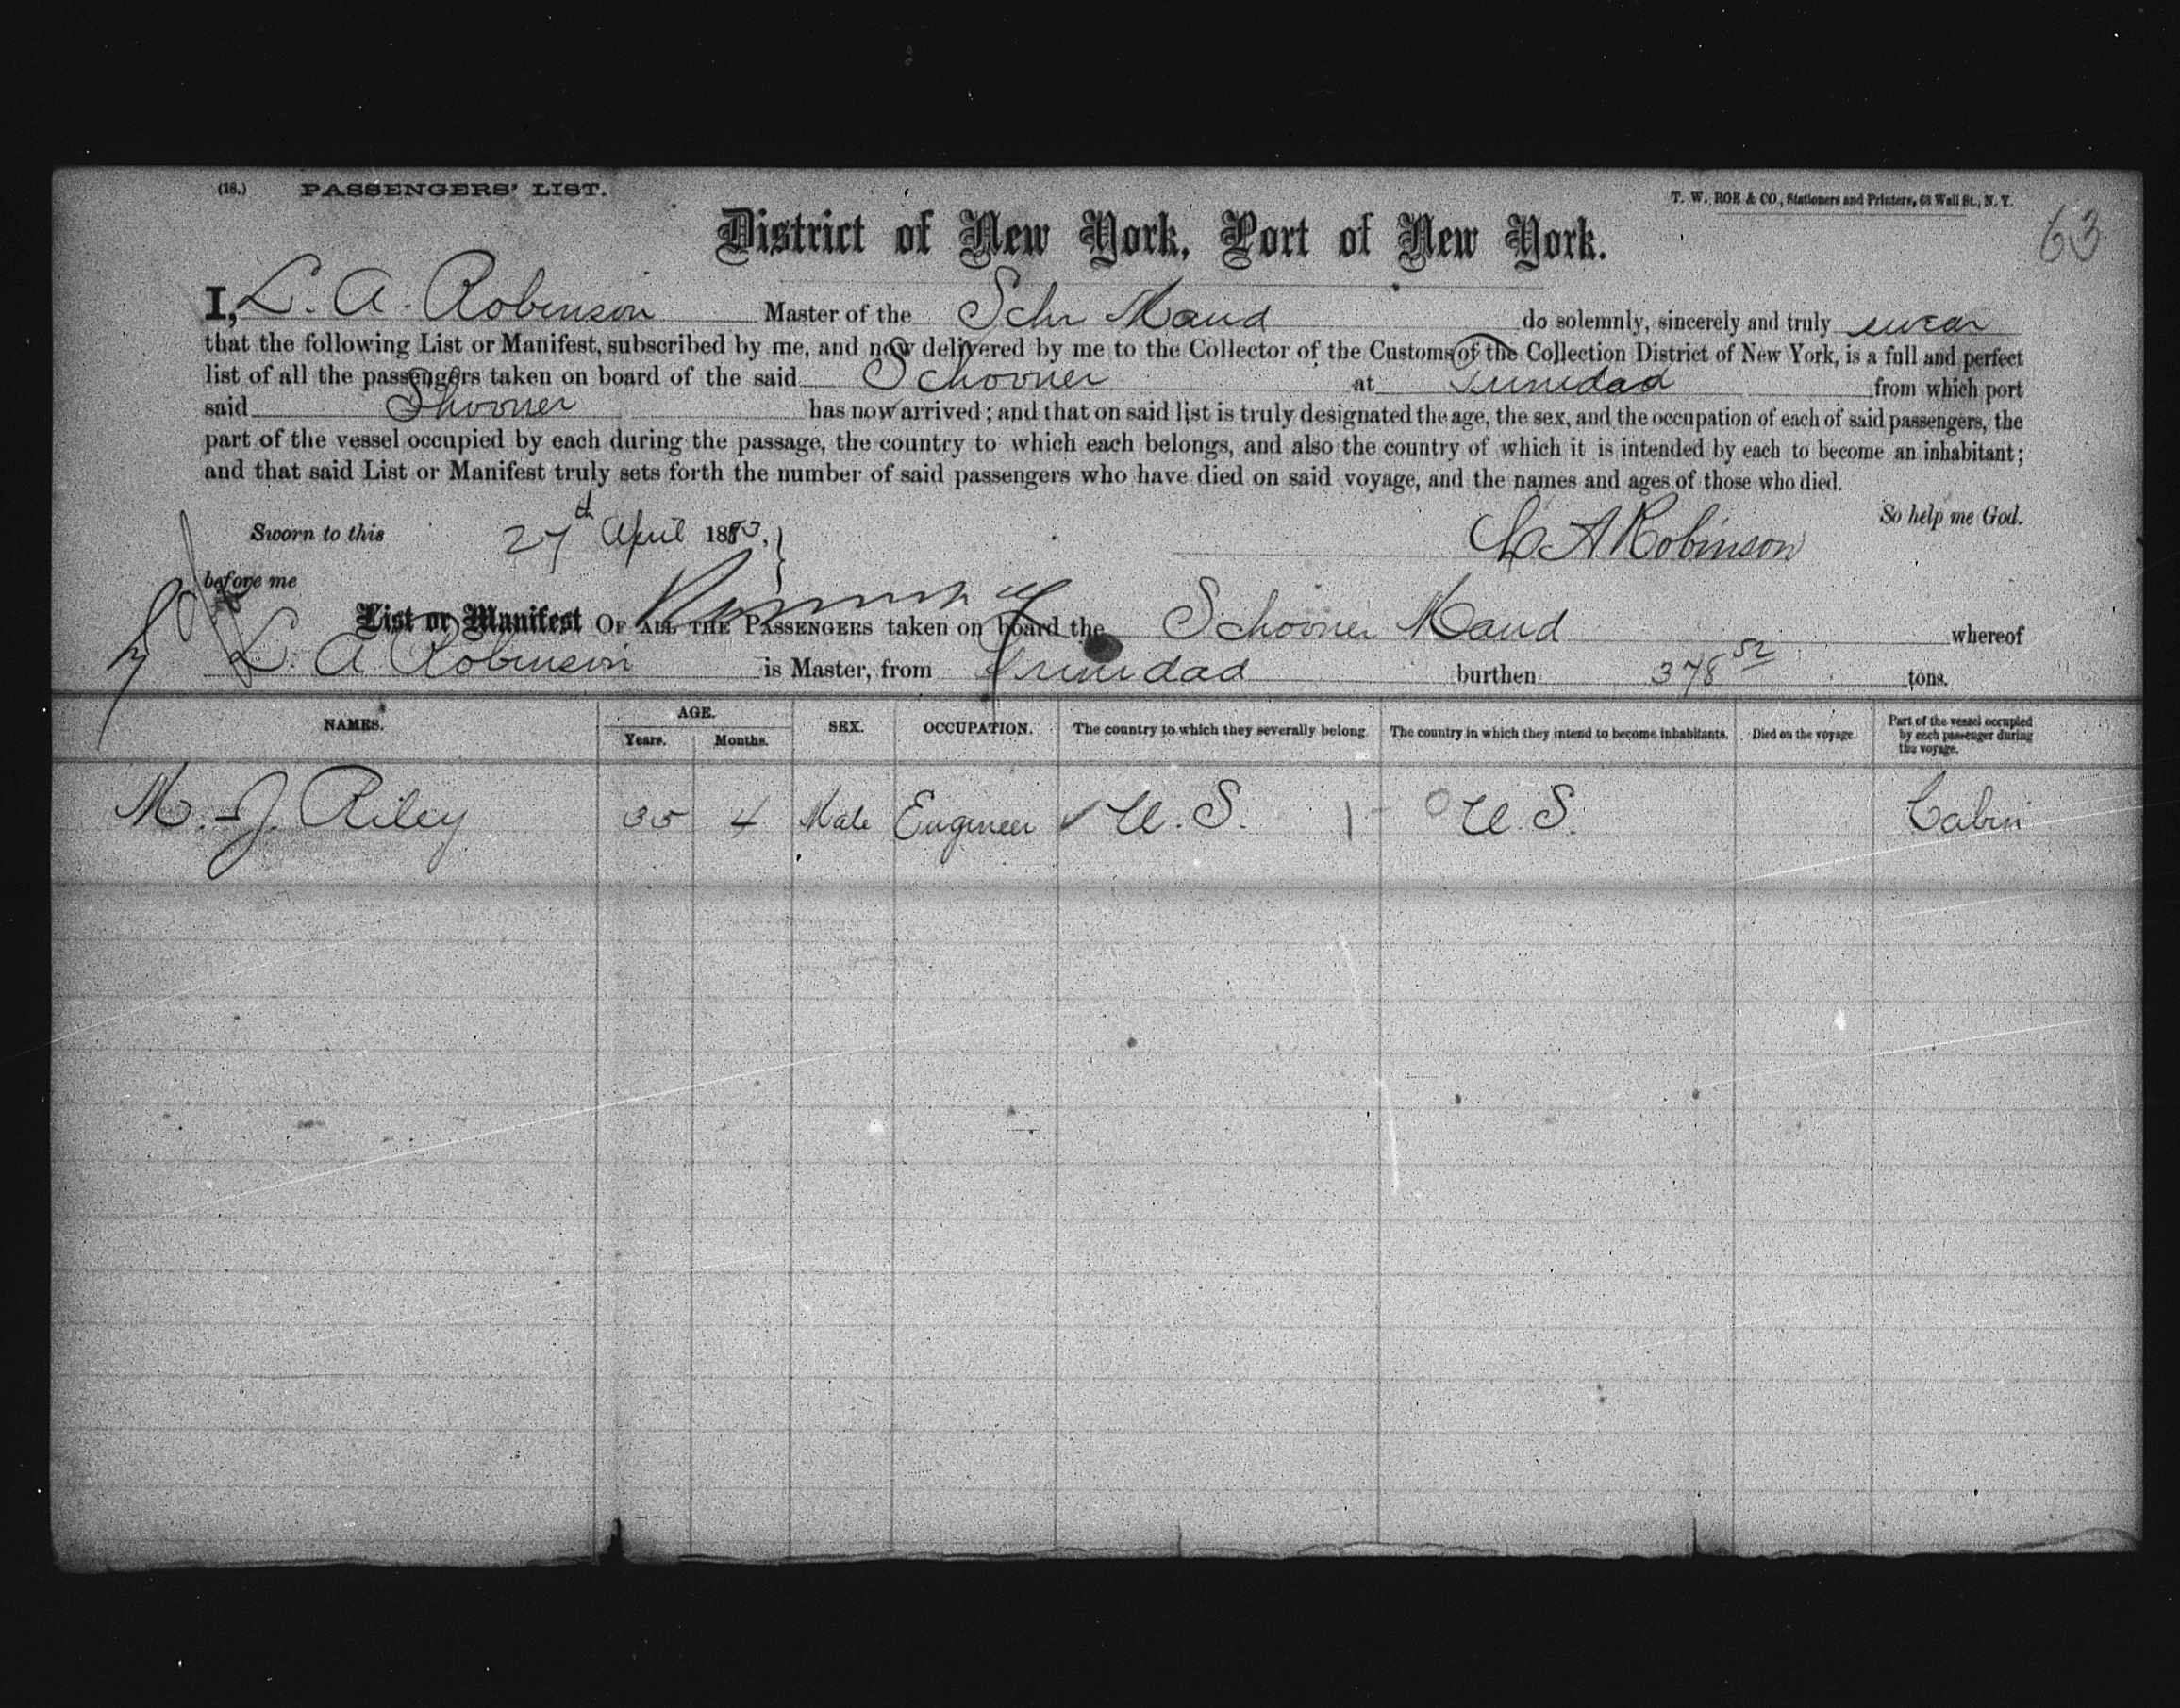 (18.) PASSENGERS' LIST.
T. W. ROE & CO., Stationers and Printers, 63 Wall St., N. Y.
63
District of New York, Port of New York.
I, L. A. Robinson Master of the Schr Maud do solemnly, sincerely and truly swear
that the following List or Manifest, subscribed by me, and now delivered by me to the Collector of the Customs of the Collection District of New York, is a full and perfect
list of all the passengers taken on board of the said Schooner at Trinidad from which port
said Shooner has now arrived; and that on said list is truly designated the age, the sex, and the occupation of each of said passengers, the
part of the vessel occupied by each during the passage, the country to which each belongs, and also the country of which it is intended by each to become an inhabitant;
and that said List or Manifest truly sets forth the number of said passengers who have died on said voyage, and the names and ages of those who died.
So help me God.
Sworn to this 27th April 1883, L. A Robinson
before me
List or Manifest OF ALL THE PASSENGERS taken on board the Schooner Maud whereof
L. A Robinson is Master, from Trinidad burthen 378 52 tons.
NAMES. AGE. Years. Months. SEX. OCCUPATION. The country to which they severally belong. The country in which they intend to become inhabitants. Died on the voyage. Part of the vessel occupied by each passenger during the voyage.
M. J. Riley 35 4 Male Engineer U. S. 1 U. S. Cabin